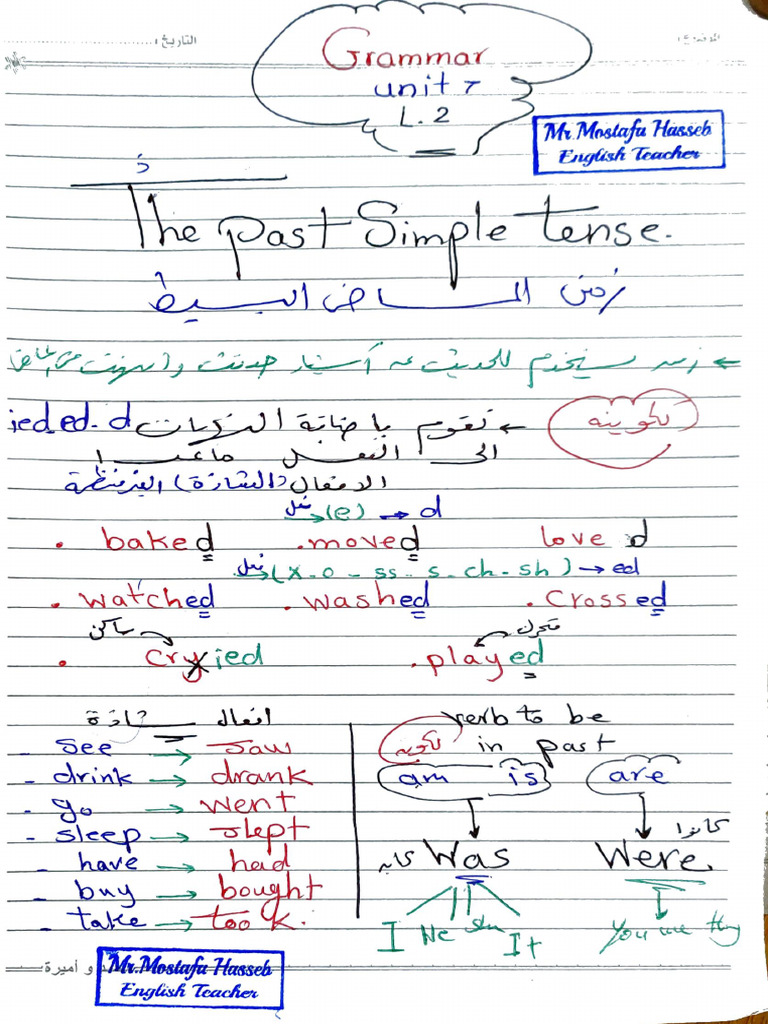 الموضوع: التاريخ:
Grammar
unit 7
L.2
Mr.Mostafa Hasseb
English Teacher
The past Simple tense.
زمن الماضى البسيط
← زمن يستخدم للحديث عن أشياء حدثت وانتهت فى الماضى
تكوينه
← نقوم باضافة النهايات ied. ed. d
الى الفعل ماعدا
الافعال (الشاذة) الغير منتظمة
(e) → d
. baked .moved loved
(x - o - ss - s - ch - sh) → ed
. watched . washed . crossed
ساكن متحرك
. cryied . played
افعال شاذة
- see → saw
- drink → drank
- go → went
- sleep → slept
- have → had
- buy → bought
- take → took.
verb to be
in past
am is are
كانوا
Was Were.
I He She It You we they
و أميرة
Mr.Mostafa Hasseb
English Teacher